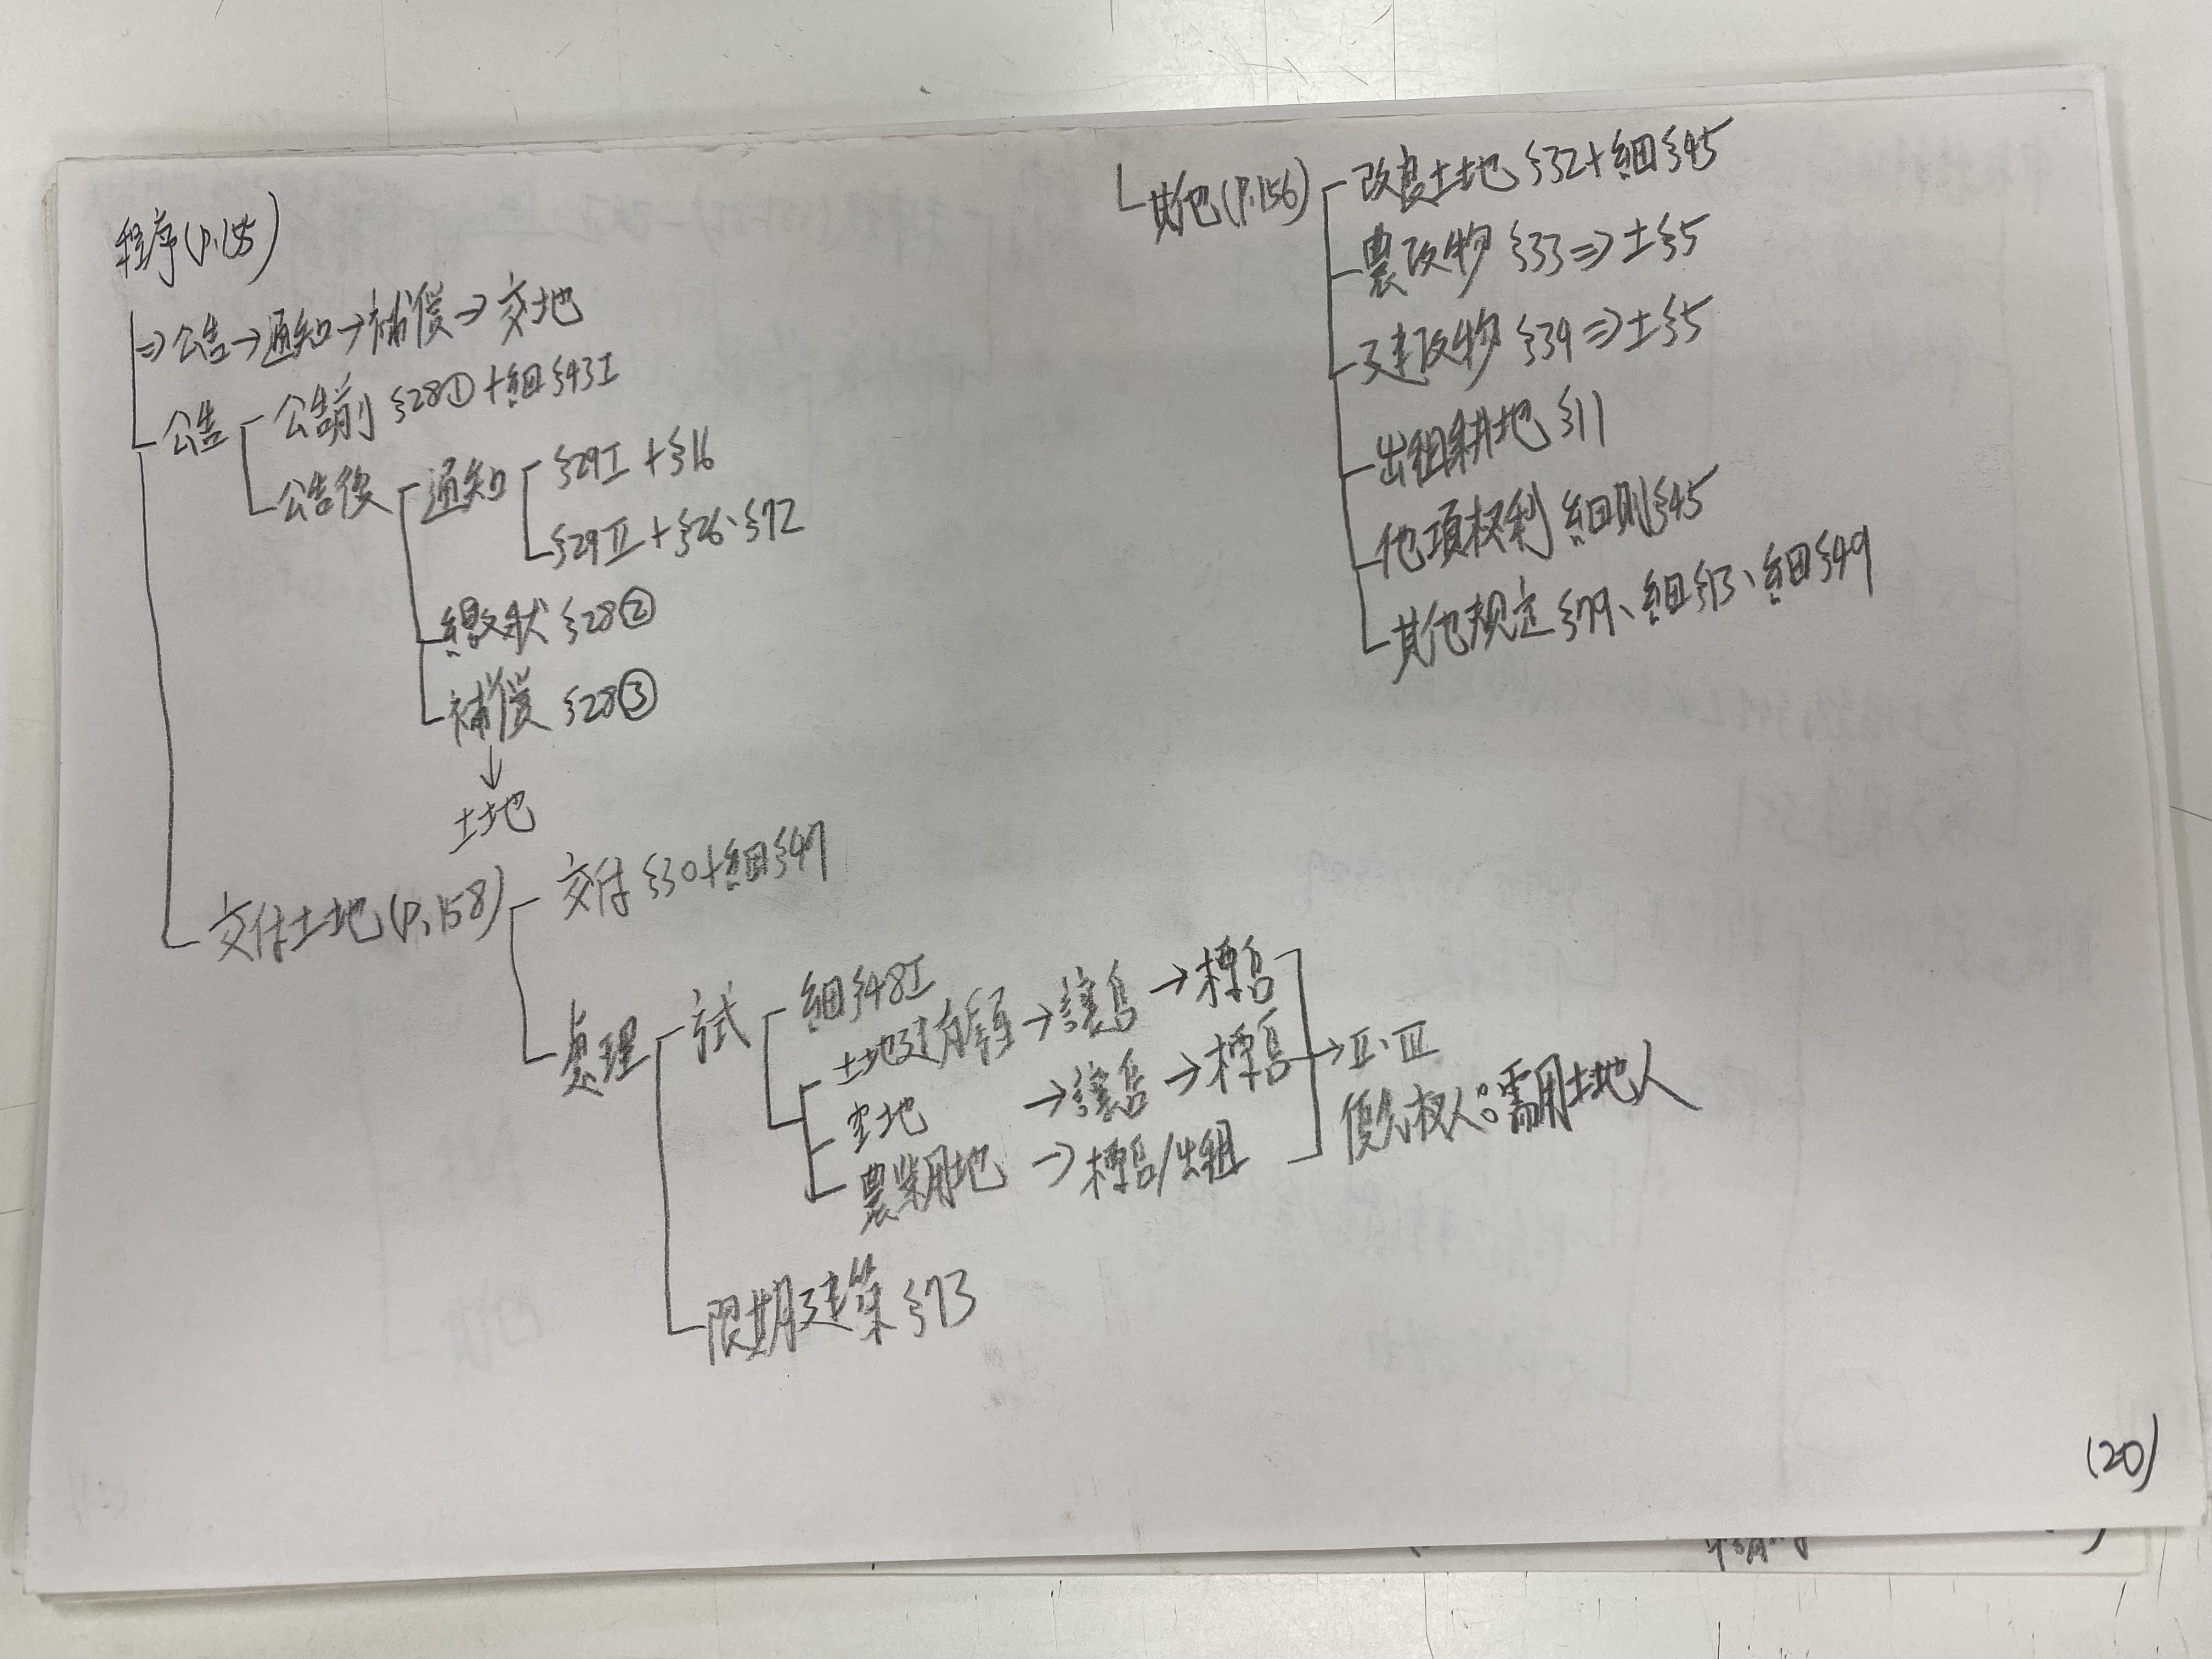 程序(P.155)
⇒公告→通知→補償→交地
公告
公告前 §28① + 細§43I
公告後
通知
§29I + §16
§29II + §26、§72
繳狀 §28②
補償 §28③
↓
土地
交付土地(P.158)
交付 §30+細§47
處理
方式
細§48I
土地 →讓售→標售
空地 →讓售→標售
農業用地 →標售/出租
→II、III
優先權人:需用土地人
限期建築 §73
其他(P.156)
改良土地 §32+細§45
農改物 §33⇒土§5
建改物 §39⇒土§5
出租耕地 §11
他項權利 細則§45
其他規定 §79、細§13、細§49
(20)